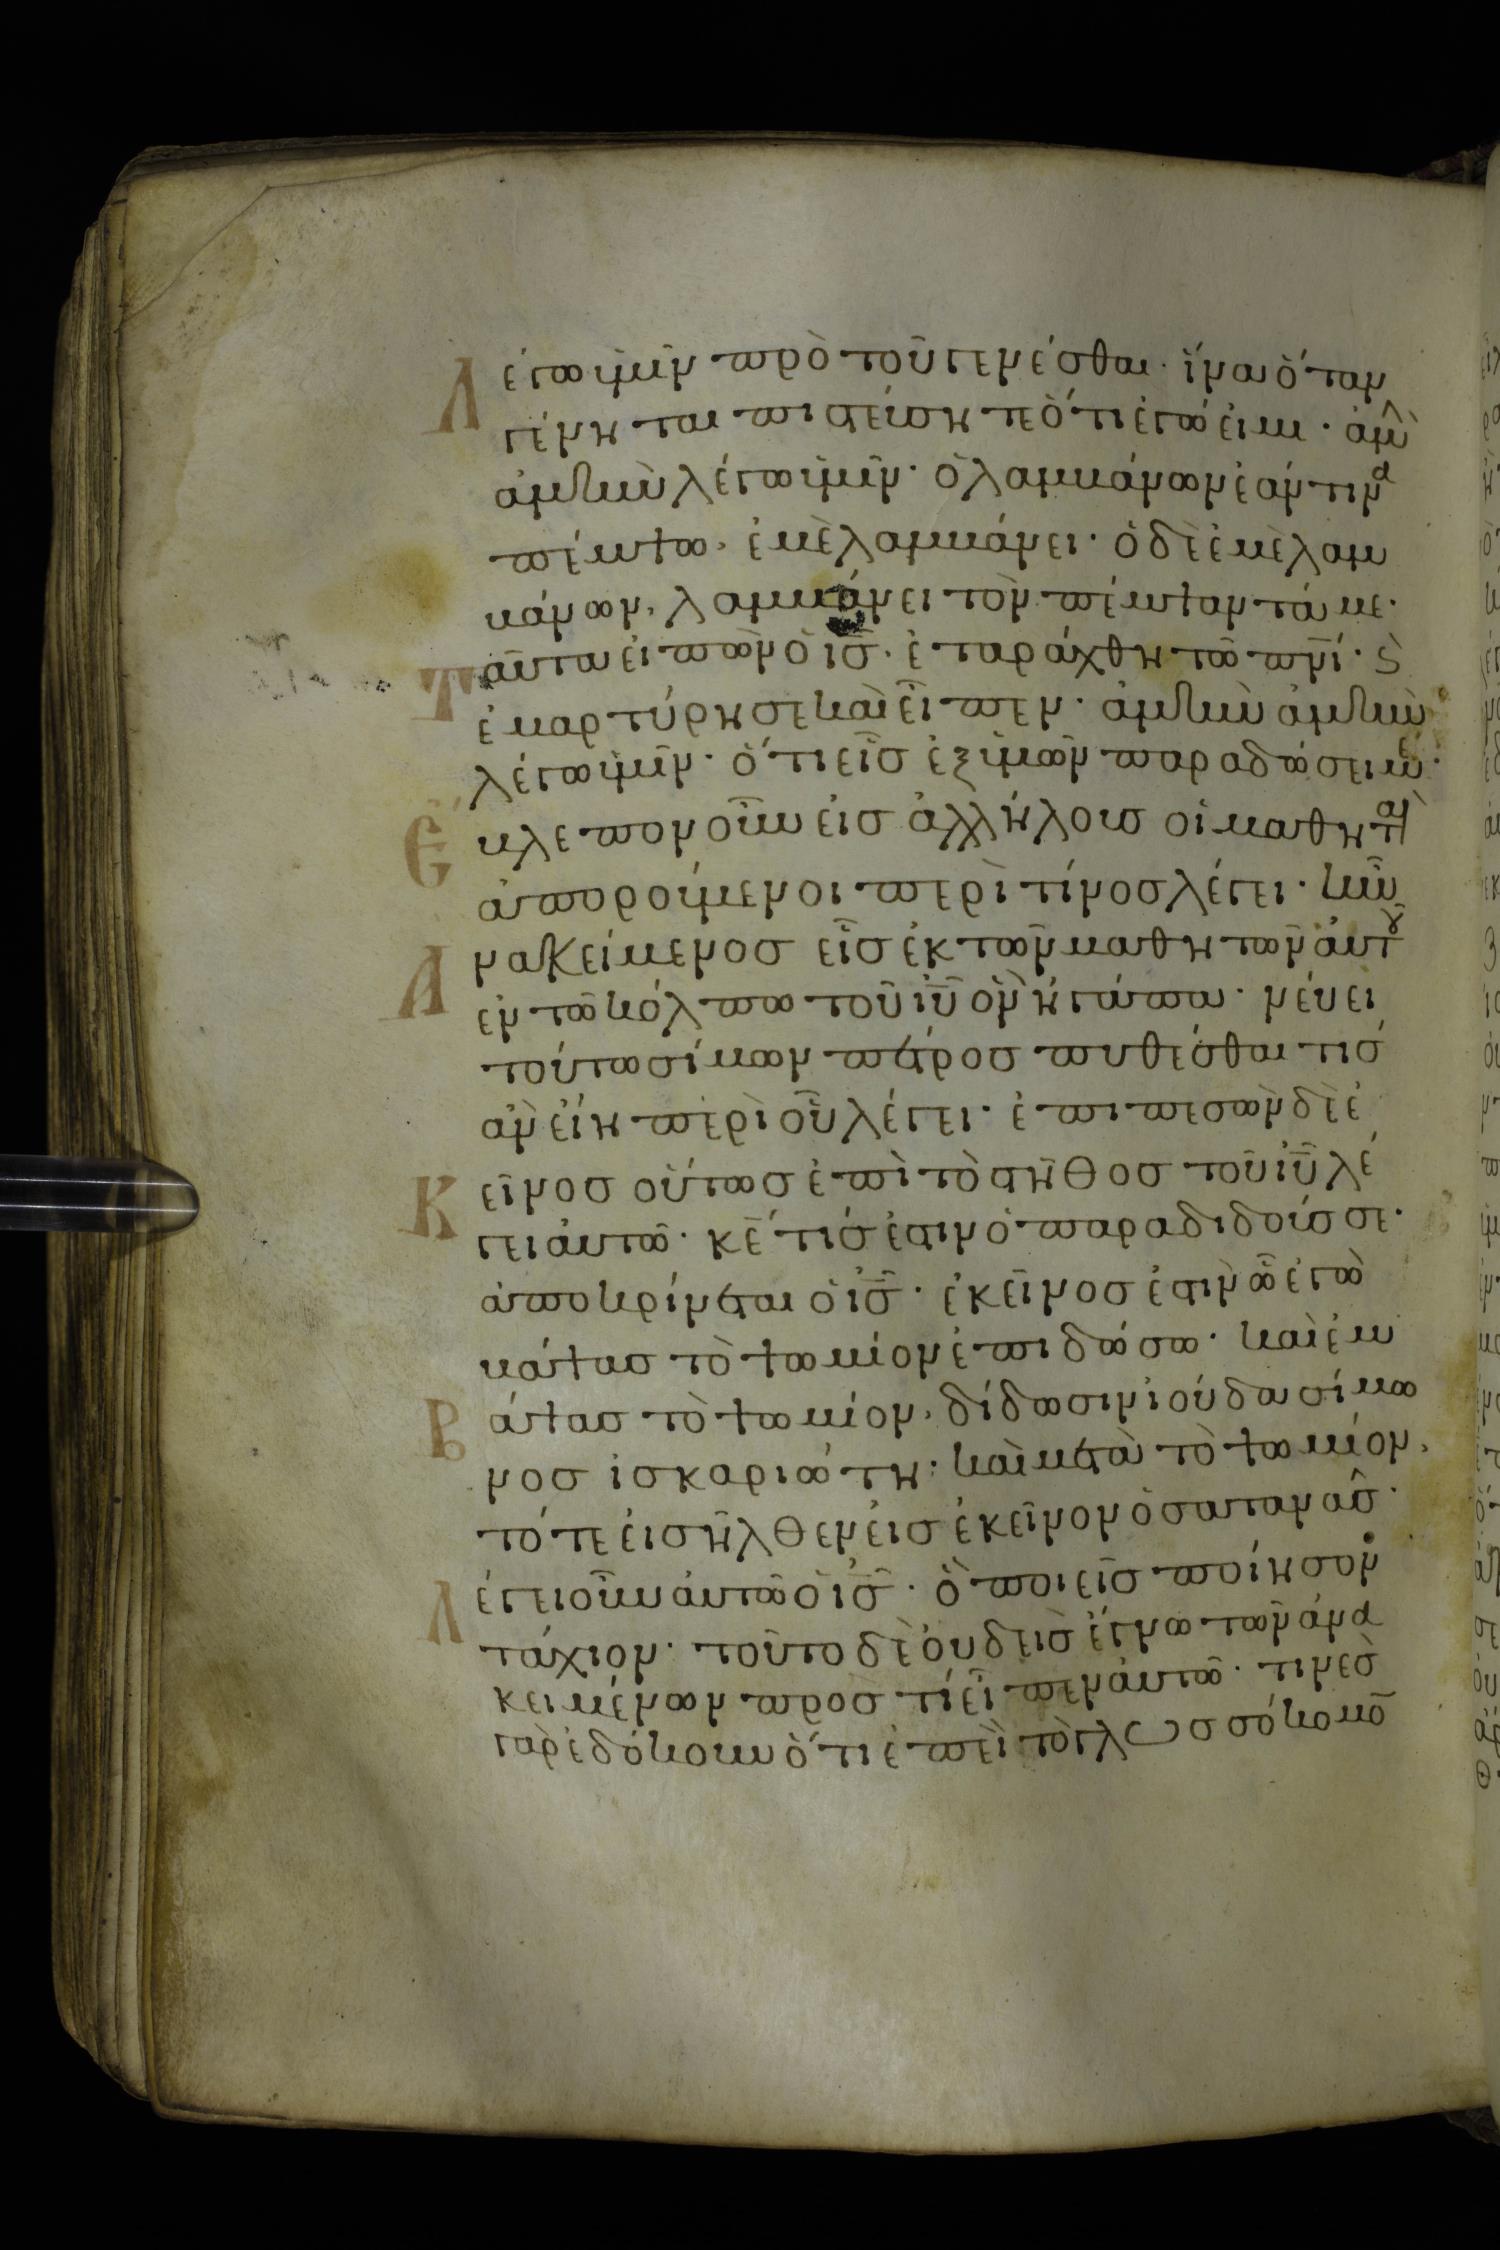 Λέγω ὑμῖν πρὸ τοῦ γενέσθαι· ἵνα ὅταν
γένηται πιστεύσητε ὅτι ἐγώ εἰμι· ἀμὴ
ἀμὴν λέγω ὑμῖν· ὁ λαμβάνων ἐάν τινα
πέμψω, ἐμὲ λαμβάνει· ὁ δὲ ἐμὲ λαμ
βάνων, λαμβάνει τὸν πέμψαντά με·
Ταῦτα εἰπὼν ὁ ις̅· ἐταράχθη τῶ πνι̅· ϗ
ἐμαρτύρησε καὶ εἶπεν· ἀμὴν ἀμὴν
λέγω ὑμῖν· ὅτι εἷς ἐξ ὑμῶν παραδώσει με·
Ἔβλεπον οὖν εἰς ἀλλήλους οἱ μαθηταὶ
ἀπορούμενοι περὶ τίνος λέγει· ἦν
Ἀνακείμενος εἷς ἐκ τῶν μαθητῶν αὐτοῦ
ἐν τῶ κόλπω τοῦ ιυ̅ ὃν ἠγάπα· νεύει
τούτω σίμων πέτρος πυθέσθαι τίς
ἂν εἴη περὶ οὗ λέγει· ἐπιπεσὼν δὲ ἐ
Κεῖνος οὕτως ἐπὶ τὸ στῆθος τοῦ ιυ̅ λέ
γει αὐτῶ· κε̅ τίς ἐστιν ὁ παραδιδούς σε·
ἀποκρίνεται ὁ ις̅· ἐκεῖνος ἐστὶν ὧ ἐγὼ
βάψας τὸ ψωμίον ἐπιδώσω· καὶ ἐμ
Βάψας τὸ ψωμίον, δίδωσιν ἰούδα σίμω
νος ἰσκαριώτη· καὶ μετὰ τὸ ψωμίον,
τότε εἰσῆλθεν εἰς ἐκεῖνον ὁ σατανᾶς·
Λέγει οὖν αὐτῶ ὁ ις̅· ὃ ποιεῖς ποίησον
τάχιον· τοῦτο δὲ οὐδεὶς ἔγνω τῶν ἀνα
κειμένων πρὸς τί εἶπεν αὐτῶ· τινὲς
γὰρ ἐδόκουν ὅτι ἐπεὶ τὸ γλωσσόκομο̅